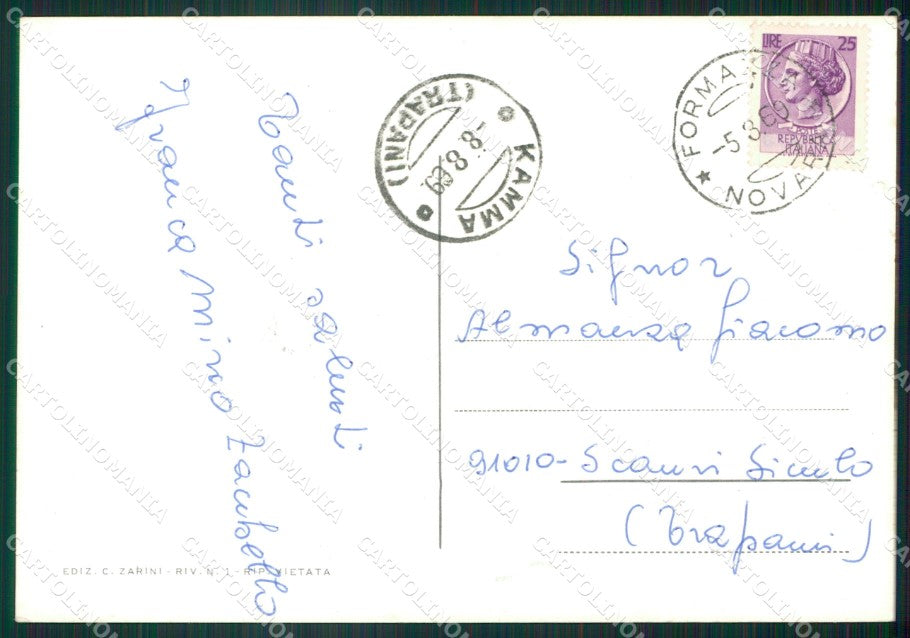 LIRE 25
REPVBBLICA
ITALIANA
NOVARA
-5.8.69
KAMMA
(TRAPANI)
-8.8.69
Tanti saluti
Franca Mino Zambello
Signor
Almanza Giacomo
91010 - Scauri Siculo
(Trapani)
EDIZ. C. ZARINI - RIV. N. 1 - RIP. VIETATA
CARTOLINOMANIA